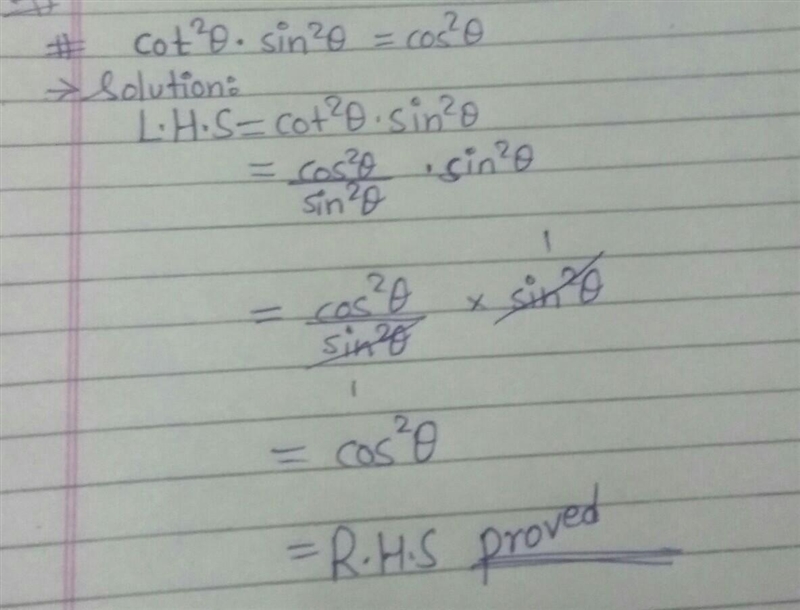 # cot²θ · sin²θ = cos²θ
→ Solution:
L.H.S = cot²θ · sin²θ
= cos²θ/sin²θ · sin²θ
1
= cos²θ/sin²θ × sin²θ
1
= cos²θ
= R.H.S proved